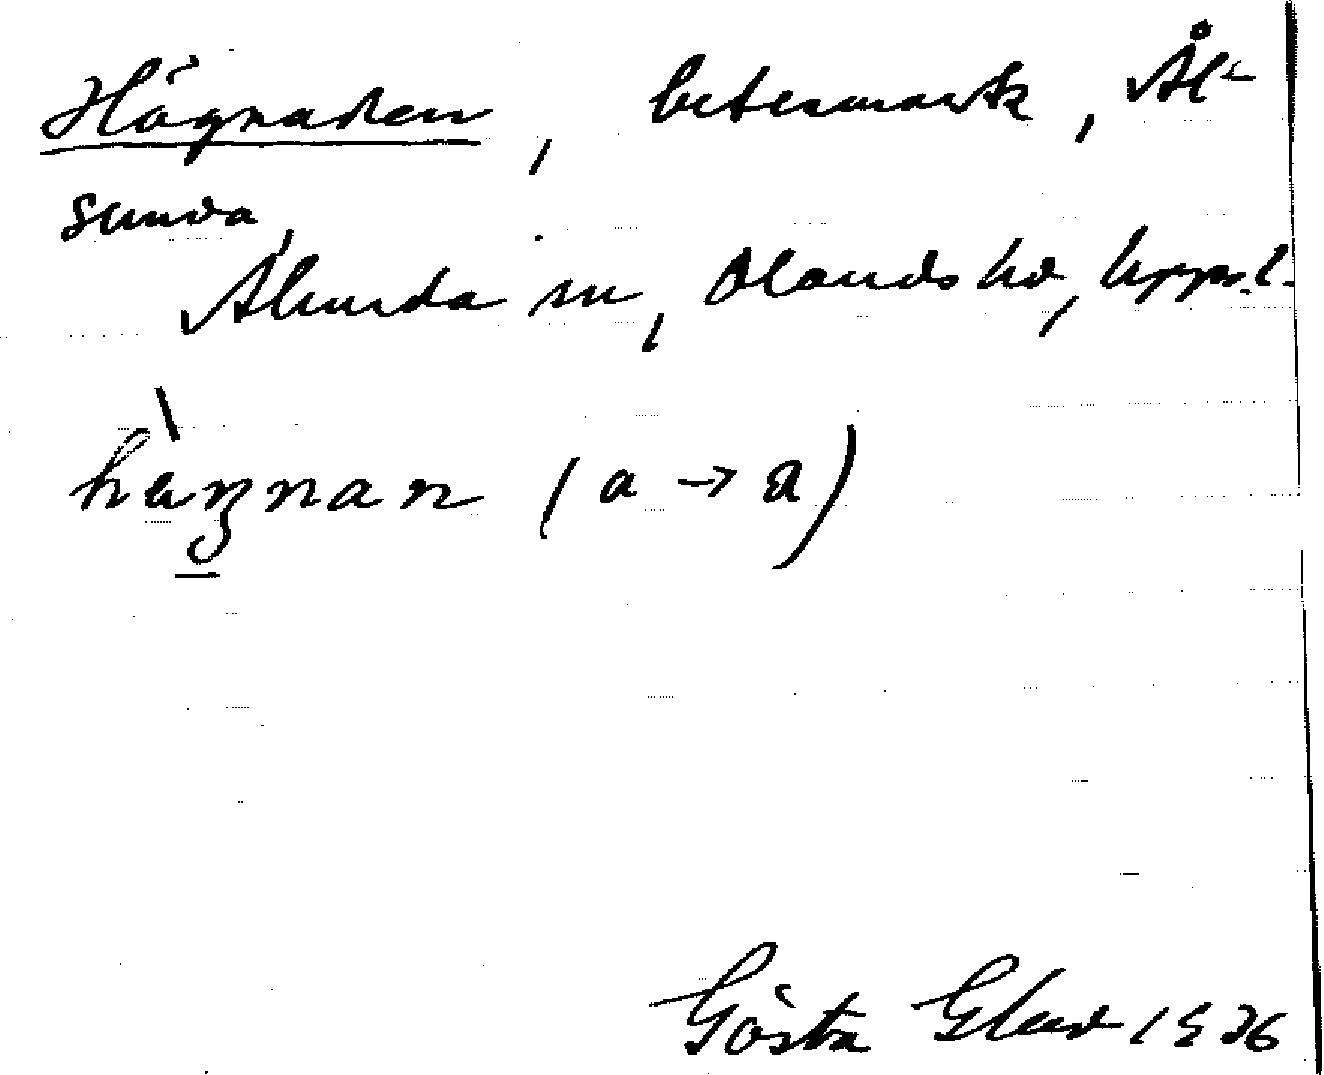 Hägnaden, betesmark, Ål-
sunda,
Alunda sn, Olands hd, Uppl.
hägnan (a → a)
Gösta Glad 1936